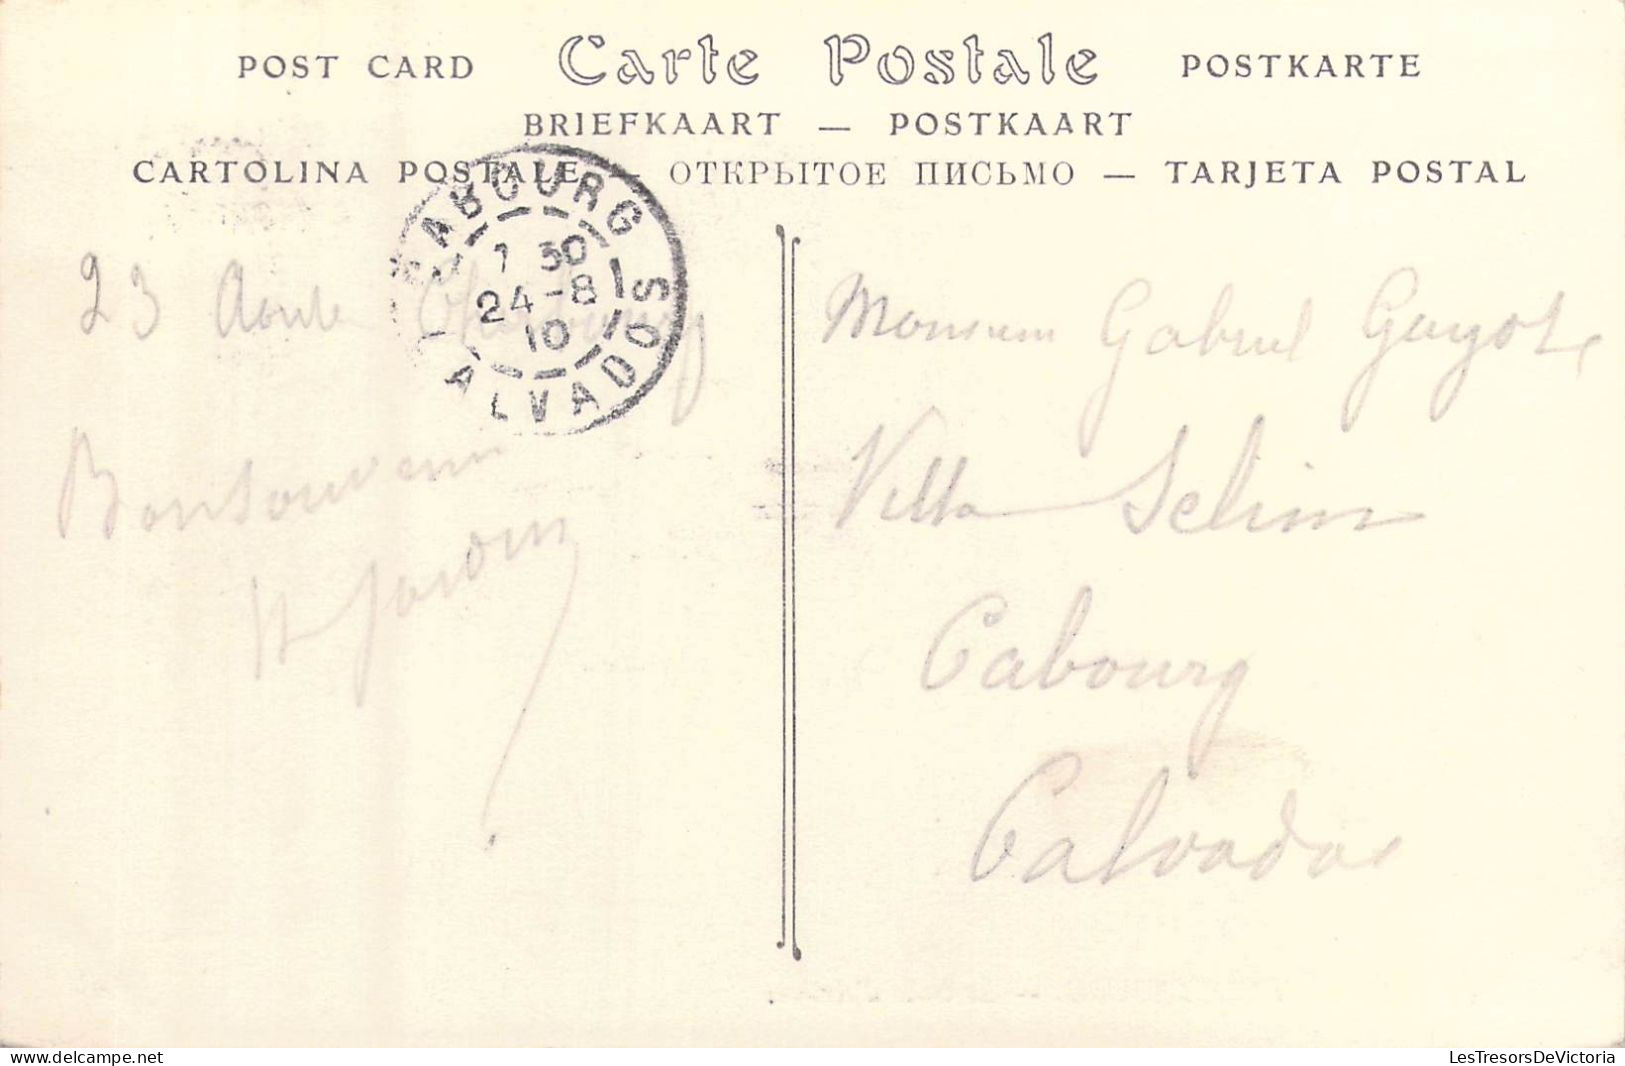 POST CARD Carte Postale POSTKARTE
BRIEFKAART — POSTKAART
CARTOLINA POSTALE — ОТКРЫТОЕ ПИСЬМО — TARJETA POSTAL
CABOURG
7 30
24-8
10
CALVADOS
23 Aout Cherbourg
Bon Souvenir
Monsieur Gabriel Guyot
Villa Selim
Cabourg
Calvados
delcampe.net
LesTresorsDeVictoria